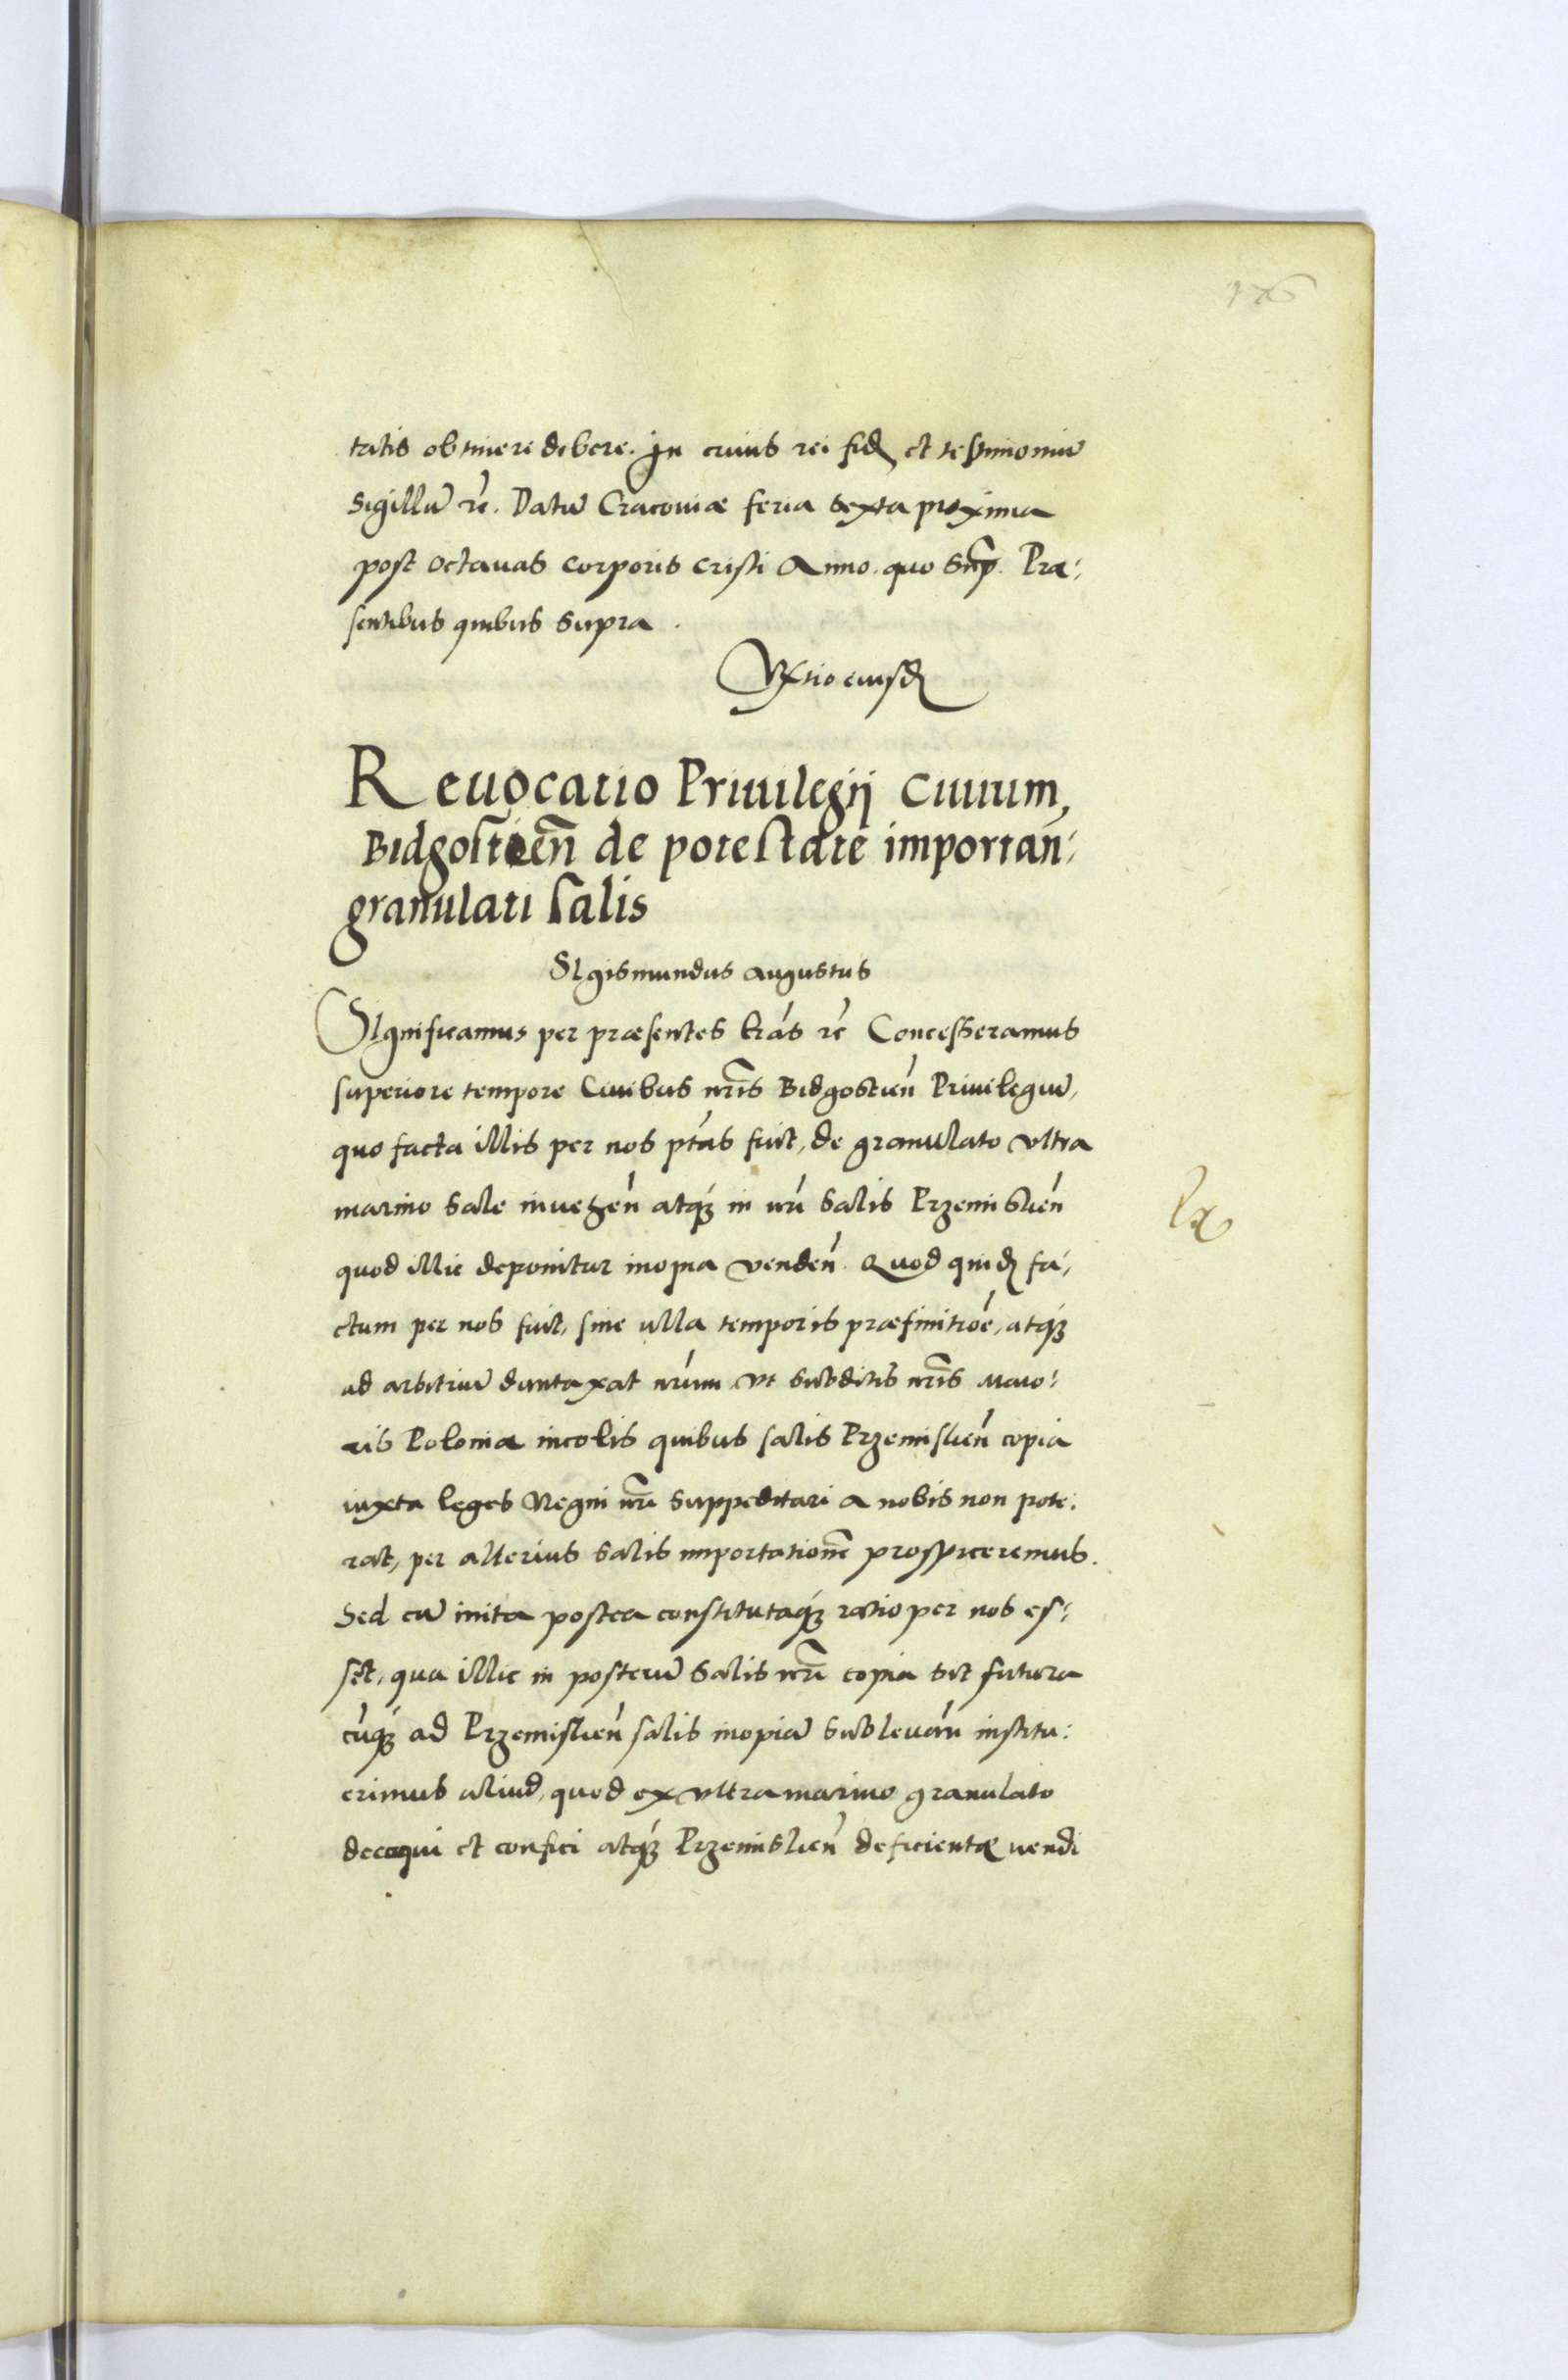 176
tatis obtinere debere. In cuius rei fid et testimoniũ
Sigillũ rc̃. Datũ Cracoviæ feria sexta proxima
post octavas Corporis Cristi Anno quo Sup̃. Præ:
sentibus quibus supra.
eiusd
Revocatio Privilegij Civium,
Bidgostien̄ de potestate importan̄:
granulati salis
SIgismundus Augustus
SIgnificamus per præsentes lr̃as rc̃ Concesseramus
superiore tempore Civibus nr̃is Bidgostien̄ Privilegiũ,
quo facta illis per nos ptãs fuit, de granulato ultra
marino sale invehen̄ atq́ in nr̃i Salis Przemislien̄
quod illic deponitur inopia venden̄. Quod quid fa:
ctum per nos fuit, sine ulla temporis præfinitioẽ, atq́
ad arbitriũ duntaxat nr̃um ut subditis nr̃is Maio:
ris Poloniæ incolis quibus salis Przemislien̄ copia
iuxta leges Regni nr̃i suppeditari a nobis non pote:
rat, per alterius salis importationẽ prospiceremus.
Sed cũ inita postea constitutaq́ ratio per nos es:
set, qua illic in posterũ Salis nr̃i copia sit futura
cũq́ ad Przemislien̄ salis inopiã sublevan̄ institu:
erimus aliud, quod ex ultramarino granulato
decoqui et confici atq́ Przemislien̄ deficientæ vendi